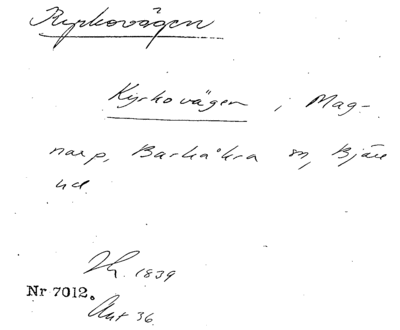 Kyrkovägen
Kyrkovägen, Mag-
narp, Barkåkra sn, Bjäre
hd
Lh. 1839
Nr 7012.
Ant 36